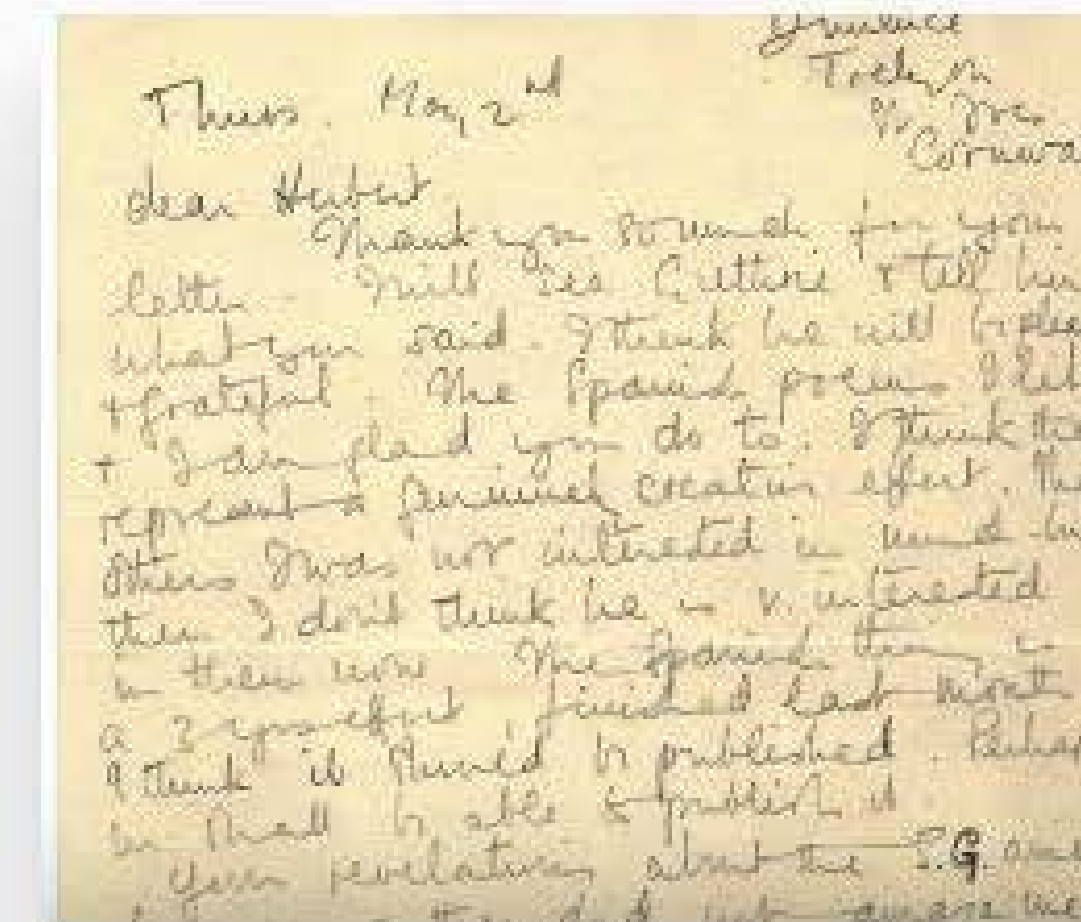 Trelyon
St. Ives
Cornwa
Thurs. May 2nd
dear Herbert
Thank you so much for your
letter. I will see Guthrie & tell him
what you said. I think he will be plea
& grateful. The Spanish poems I lik
& I am glad you do to. I think the
represent a genuinely creative effort. The
others I was not interested in much -
then I don't think he is v. interested
in them now The Spanish thing is
a 2 yrs effort, finished last month
I think it should be published. Perhap
we shall be able to publish it.
Your revelations about the S.G. and